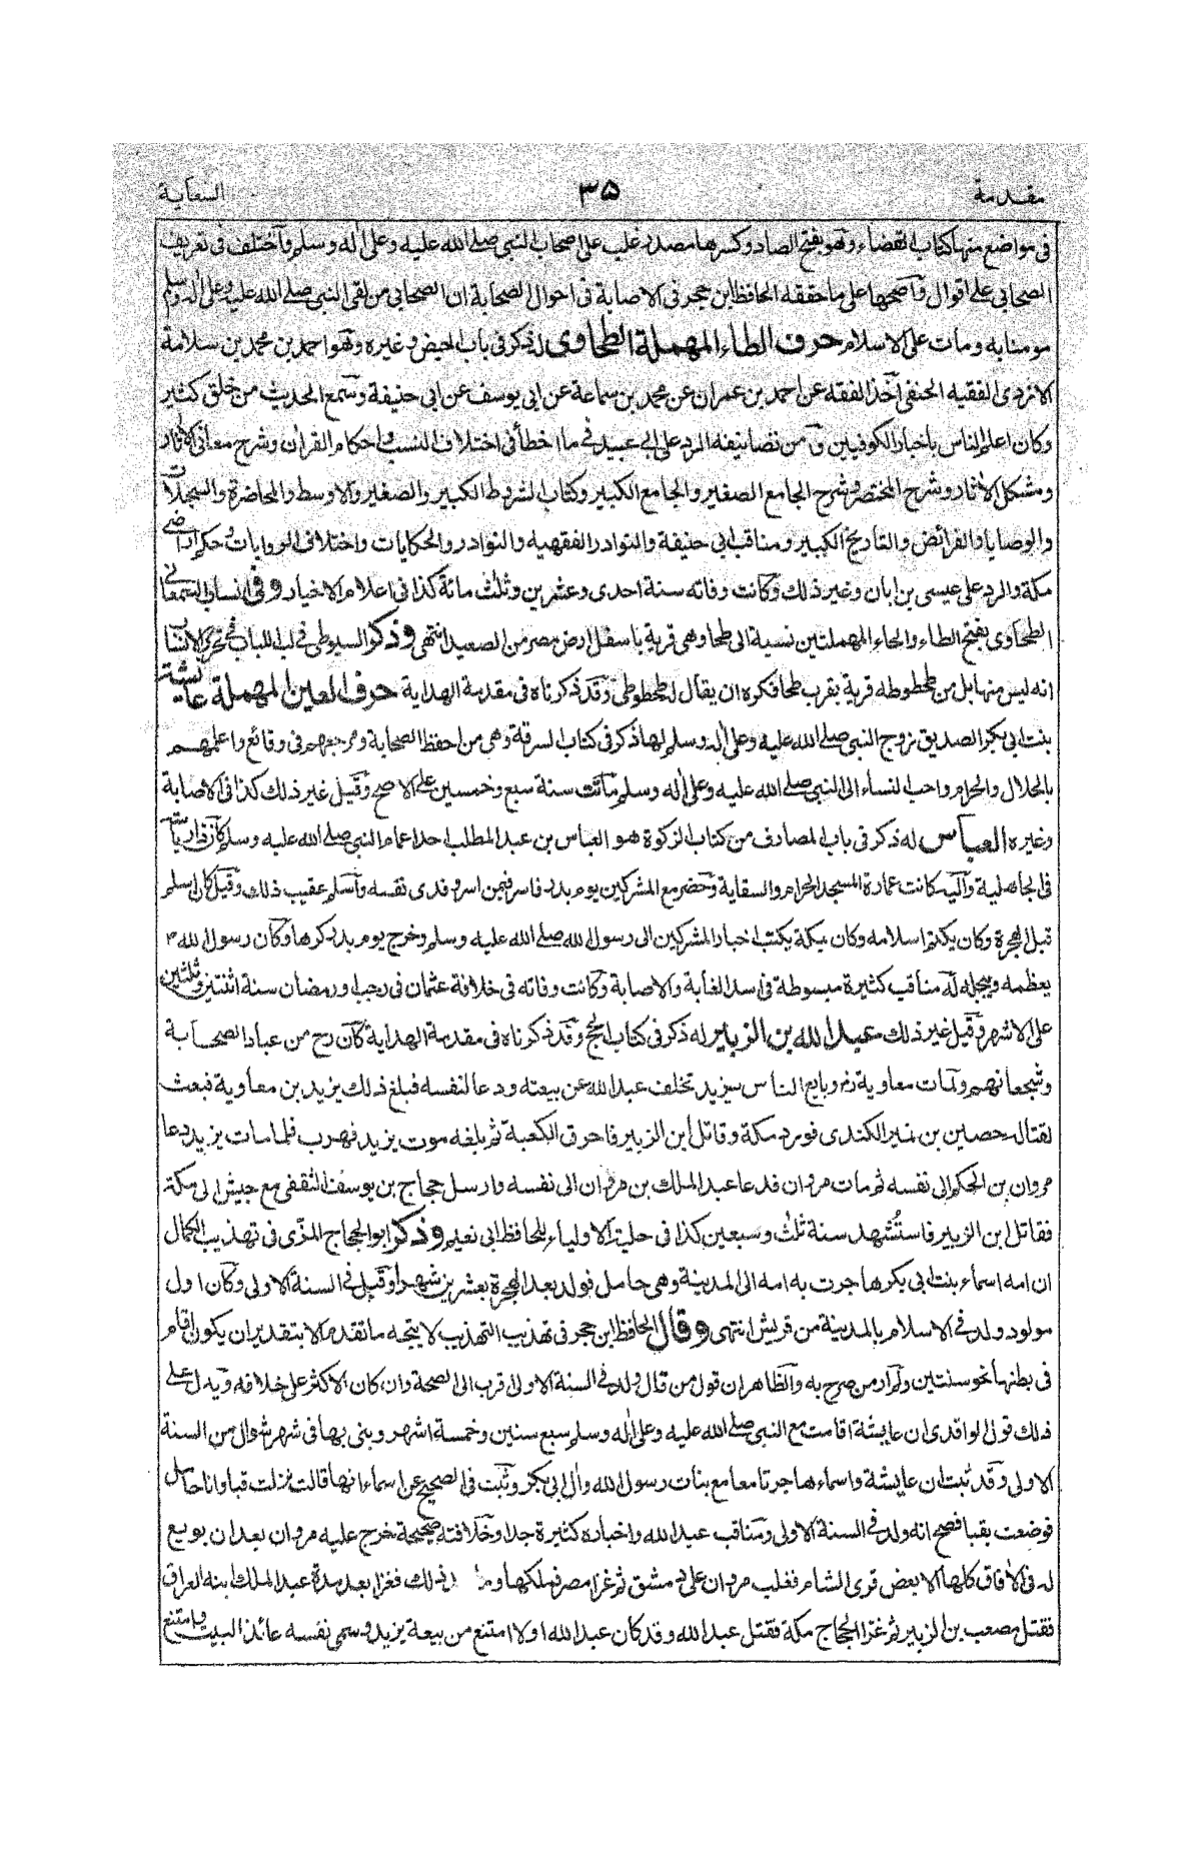 مقدمة ٣٥ السعاية
فى مواضع منها كتاب القضاء وهو بفتح الصاد وكسرها مصدر غلب على اصحاب النبى صلى الله عليه وعلى اله وسلم وآختلف فى تعريف
الصحابى على اقوال وآصحها على ما حققه الحافظ ابن حجر فى الاصابة فى احوال الصحابة ان الصحابى من لقى النبى صلى الله عليه وعلى اله وسلم
مومنا به ومات على الاسلام حرف الطاء المهملة الطحاوى له ذكر فى باب الحيض وغيره وهو احمد بن محمد بن سلامة
الازدى الفقيه الحنفى اخذ الفقه عن احمد بن عمران عن محمد بن سماعة عن ابى يوسف عن ابى حنيفة وسمع الحديث من خلق كثير
وكان اعلم الناس باخبار الكوفيين ومن تصانيفه الرد على ابى عبيد فى ما اخطأ فى اختلاف النسب واحكام القران وشرح معانى الاثار
ومشكل الاثار وشرح المختصر وشرح الجامع الصغير والجامع الكبير وكتاب الشروط الكبير والصغير والاوسط والمحاضرة والسجلات
والوصايا والفرائض والتاريخ الكبير ومناقب ابى حنيفة والنوادر الفقهية والنوادر والحكايات واختلاف الروايات وحكم اراضى
مكة والرد على عيسى بن ابان وغير ذلك وكانت وفاته سنة احدى وعشرين وثلث مائة كذا فى اعلام الاخيار وفى انساب السمعانى
الطحاوى بفتح الطاء والحاء المهملتين نسبة الى طحا وهى قرية باسفل ارض مصر من الصعيد انتهى وذكر السيوطى فى لب اللباب فى تحرير الانساب
انه ليس منها بل من طحطوطه قرية بقرب طحا فكره ان يقال له طحطوطى وقد ذكرناه فى مقدمة الهداية حرف العين المهملة عايشة
بنت ابى بكر الصديق زوج النبى صلى الله عليه وعلى اله وسلم لها ذكر فى كتاب السرقة وهى من احفظ الصحابة ومرجعهم فى وقائع واعلمهم
بالحلال والحرام واحب النساء الى النبى صلى الله عليه وعلى اله وسلم مآتت سنة سبع وخمسين على الاصح وقيل غير ذلك كذا فى الاصابة
وغيره العباس له ذكر فى باب المصارف من كتاب الزكوة هو العباس بن عبد المطلب احد اعمام النبى صلى الله عليه وسلم كان رئيسا
فى الجاهلية وآليه كانت عمارة المسجد الحرام والسقاية وحضر مع المشركين يوم بدر فاسر فيمن اسر وفدى نفسه وآسلم عقيب ذلك وقيل كان اسلم
قبل الهجرة وكان يكتم اسلامه وكان بمكة يكتب اخبار المشركين الى رسول الله صلى الله عليه وسلم وخرج يوم بدر كرها وكان رسول الله م
يعظمه ويجله له مناقب كثيرة مبسوطة فى اسد الغابة والاصابة وكانت وفاته فى خلافة عثمان فى رجب او رمضان سنة اثنتين وثلثين
على الاشهر وقيل غير ذلك عبد الله بن الزبير له ذكر فى كتاب الحج وقد ذكرناه فى مقدمة الهداية كان رح من عباد الصحابة
وشجعانهم ولما مات معاوية رض وبايع الناس يزيد تخلف عبد الله عن بيعته ودعا لنفسه فبلغ ذلك يزيد بن معاوية فبعث
لقتاله حصين بن نمير الكندى فورد مكة وقاتل ابن الزبير فاحرق الكعبة ثم بلغه موت يزيد فهرب فلما مات يزيد دعا
مروان بن الحكم الى نفسه ثم مات مروان فدعا عبد الملك بن مروان الى نفسه وارسل حجاج بن يوسف الثقفى مع جيش الى مكة
فقاتل ابن الزبير فاستُشهد سنة ثلث وسبعين كذا فى حلية الاولياء للحافظ ابى نعيم وذكر ابو الحجاج المزّى فى تهذيب الكمال
ان امه اسماء بنت ابى بكر هاجرت به امه الى المدينة وهى حامل فولد بعد الهجرة بعشرين شهرا وقيل فى السنة الاولى وكان اول
مولود ولد فى الاسلام بالمدينة من قريش انتهى وقال الحافظ ابن حجر فى تهذيب التهذيب لا يتجه ما تقدم الا بتقدير ان يكون اقام
فى بطنها نحو سنتين ولم ار من صرح به والظاهر ان قول من قال ولد فى السنة الاولى اقرب الى الصحة وان كان الاكثر على خلافه ويدل على
ذلك قول الواقدى ان عايشة اقامت مع النبى صلى الله عليه وعلى اله وسلم سبع سنين وخمسة اشهر وبنى بها فى شهر شوال من السنة
الاولى وقد ثبت ان عايشة واسماء هاجرتا معا مع بنات رسول الله وال ابى بكر وثبت فى الصحيح عن اسماء انها قالت نزلت قبا وانا حامل
فوضعت بقبا فصح انه ولد فى السنة الاولى ومناقب عبد الله واخباره كثيرة جدا وخلافته صحيحة خرج عليه مروان بعد ان بويع
له فى الافاق كلها الا بعض قرى الشام فغلب مروان على دمشق ثم غزا مصر فملكها ذلك فغزا بعد مدة عبد الملك ابنه العراق
فقتل مصعب بن الزبير ثم غزا الحجاج مكة فقتل عبد الله وقد كان عبد الله اولا امتنع من بيعة يزيد وسمى نفسه عائذ البيت وامتنع